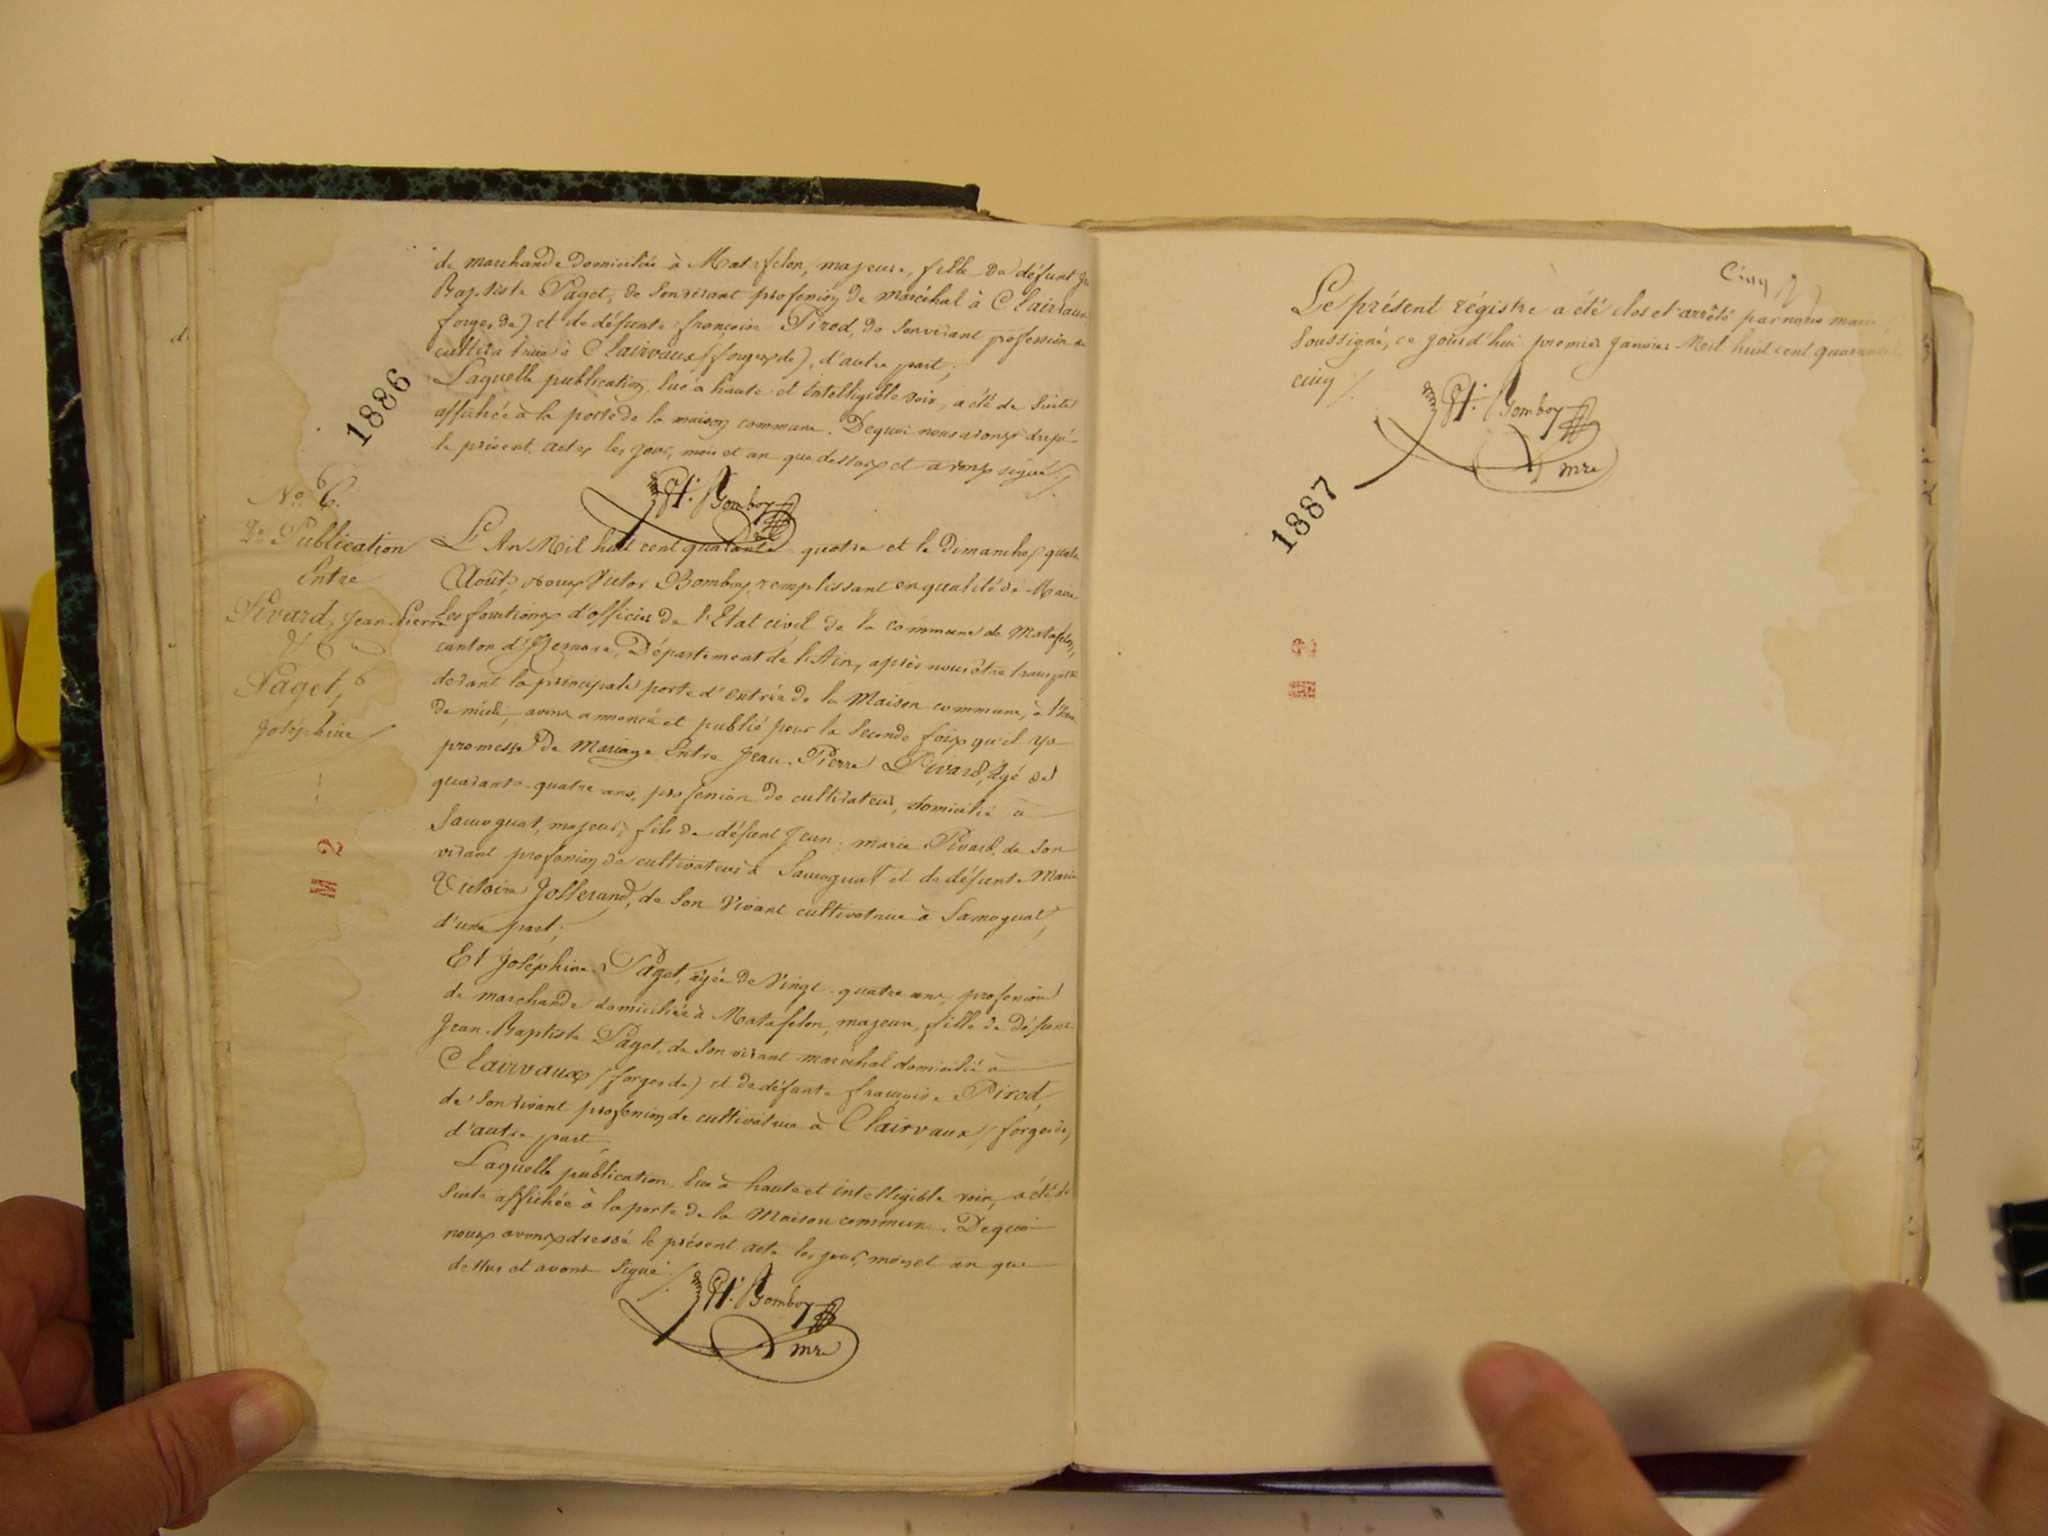 de marchande domiciliée à Matafelon, majeure, fille de défunt Jn
Baptiste Paget, de son vivant profession de maréchal à Clairvaux
forges de) et de défunte françoise Pirod, de son vivant profession de
cultivatrice à Clairvaux (forges de), d'autre part;
Laquelle publication, lue à haute et intelligible voix, a été de suite
affichée à la porte de la maison commune. De quoi nous avons dressé
le présent acte, les jour, mois et an que dessus et avons signé ./.
1886
Pt. Bomboy
No 6.
2e Publication
Entre
Pivard, Jean-Pierre
&
Paget,
Joséphine
L'An Mil huit cent quarante quatre et le dimanche quatre
Août, Nous Victor Bomboy remplissant en qualité de Maire
les fonctions d'officier de l'Etat civil de la commune de Matafelon,
canton d'Izernore, Département de l'Ain, après nous être transporté
devant la principale porte d'entrée de la Maison commune, à l'heure
de midi, avons annoncé et publié pour la seconde fois qu'il y a
promesse de Mariage Entre Jean-Pierre Pivard, âgé de
quarante-quatre ans, profession de cultivateur, domicilié à
Samognat, majeur, fils de défunt Jean-marie Pivard, de son
vivant profession de cultivateur à Samognat et de défunte Marie
Victoire Josserand, de son Vivant cultivatrice à Samognat,
d'une part;
Et Joséphine Paget, âgée de Vingt-quatre ans, profession
de marchande domiciliée à Matafelon, majeure, fille de défunt
Jean-Baptiste Paget, de son vivant maréchal domicilié à
Clairvaux (forges de) et de défunte françoise Pirod,
de son vivant profession de cultivatrice à Clairvaux (forges de)
d'autre part,
Laquelle publication, lue à haute et intelligible voix, a été de
suite affichée à la porte de la Maison commune. De quoi
nous avons dressé le présent acte les jour, mois et an que
dessus et avons signé ./.
Pt. Bomboy
mre
Cinq
Le présent régistre a été clos et arrêté par nous maire
soussigné, ce jourd'hui premier janvier Mil huit cent quarante
cinq ./.
Pt. Bomboy
mre
1887